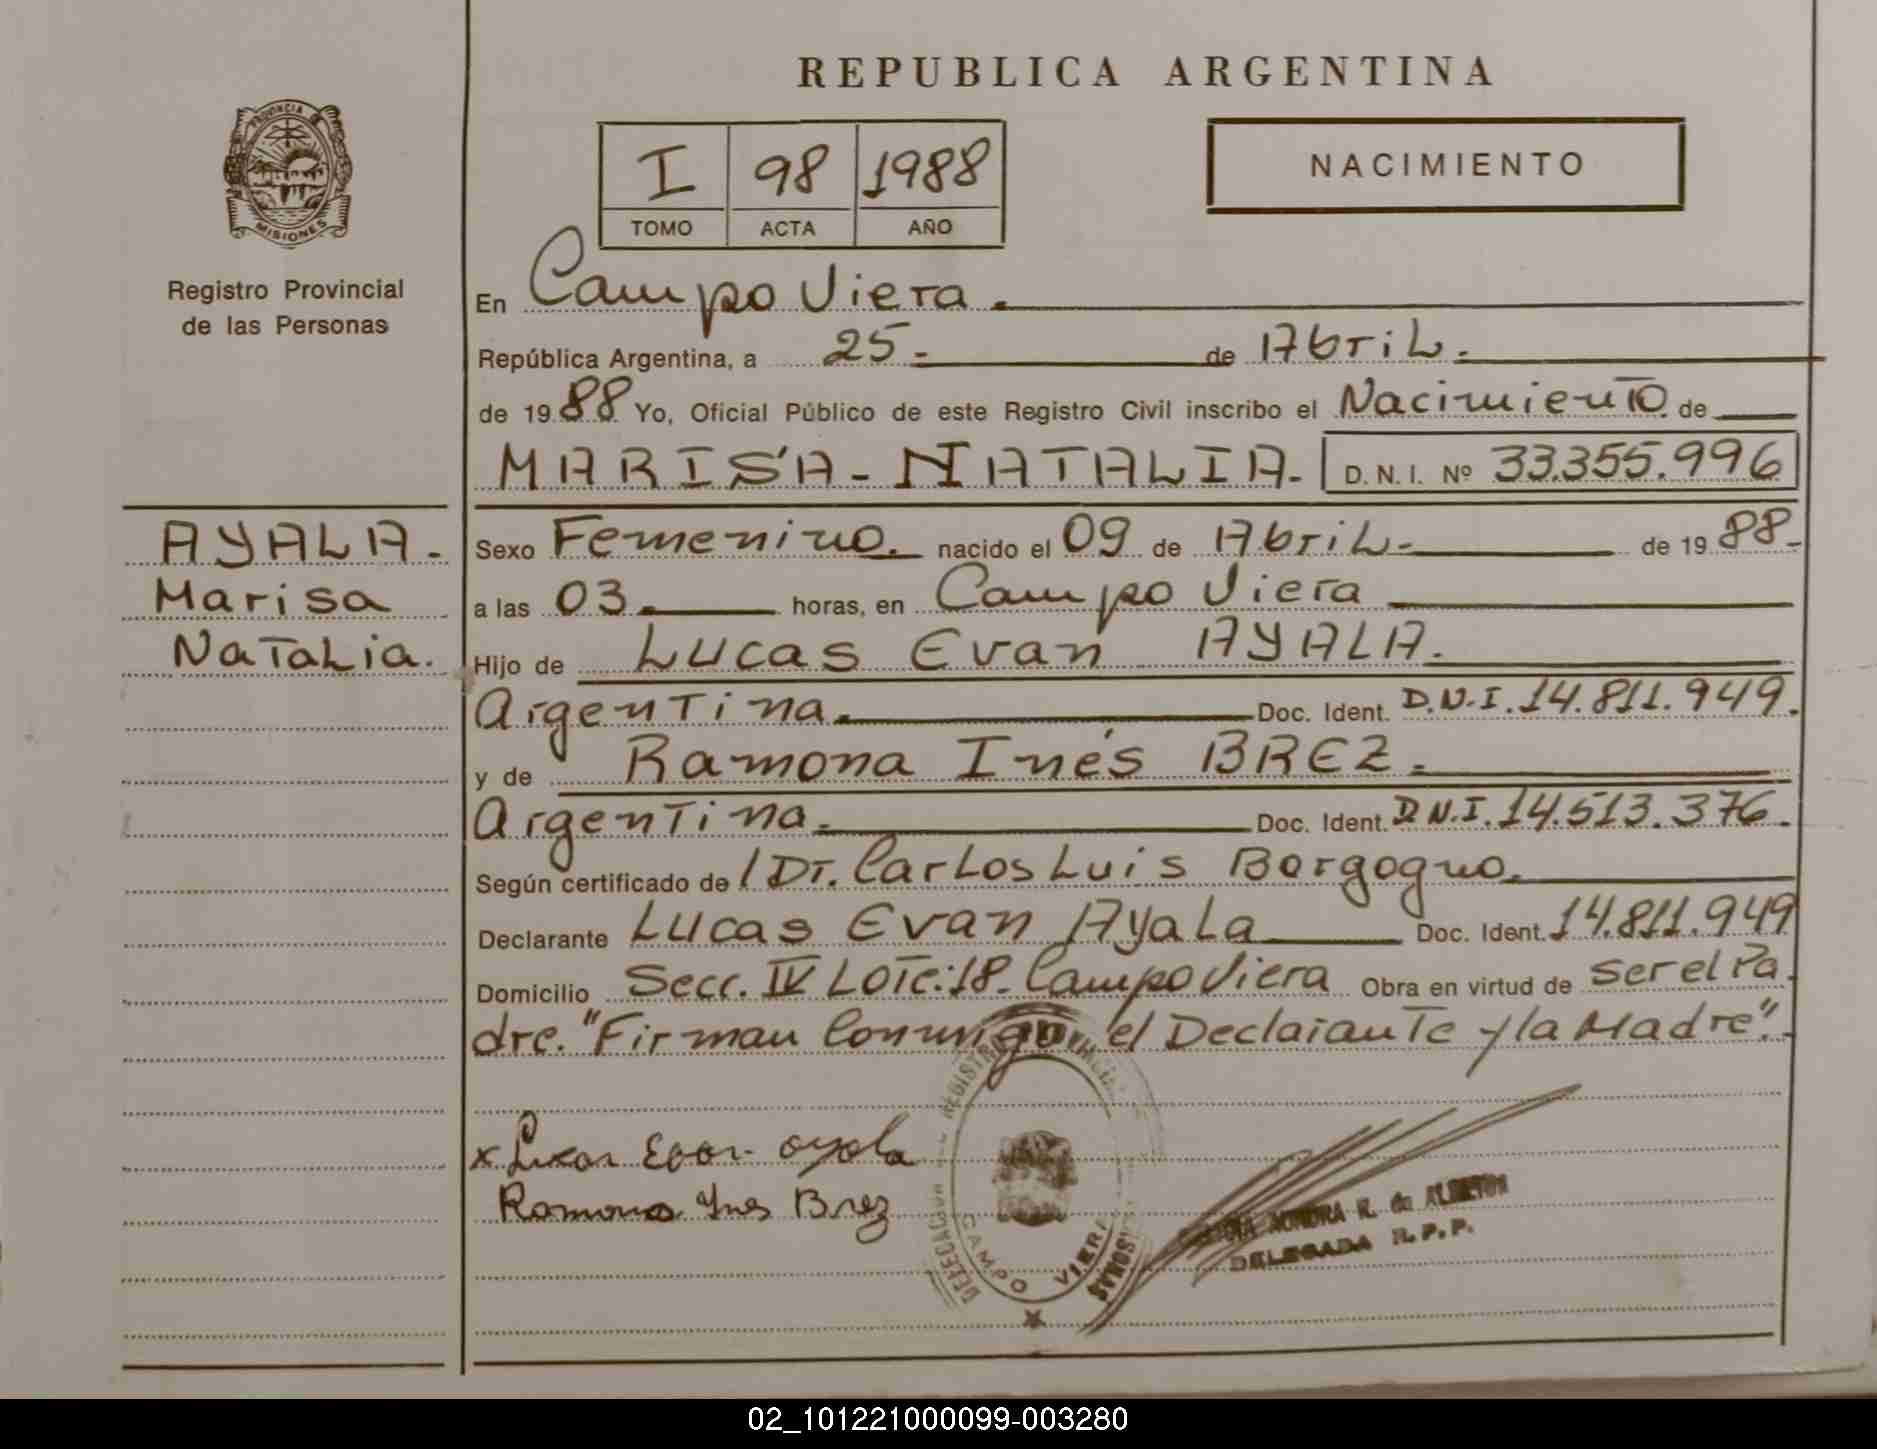 REPUBLICA ARGENTINA
PROVINCIA DE
MISIONES
Registro Provincial
de las Personas
I 98 1988
TOMO ACTA AÑO
NACIMIENTO
En Campo Viera.
República Argentina, a 25 - de Abril.
de 1988 Yo, Oficial Público de este Registro Civil inscribo el Nacimiento de
MARISA - NATALIA. D. N. I. Nº 33.355.996
AYALA.
Marisa
Natalia.
Sexo Femenino. nacido el 09 de Abril. de 1988.
a las 03. horas, en Campo Viera
Hijo de Lucas Evan AYALA.
Argentina. Doc. Ident. D.N.I. 14.811.949.
y de Ramona Inés BREZ.
Argentina. Doc. Ident. D.N.I. 14.513.376.
Según certificado de / Dr. Carlos Luis Borgogno.
Declarante Lucas Evan Ayala Doc. Ident. 14.811.949
Domicilio Secc. IV Lote:18. Campo Viera Obra en virtud de ser el Pa
dre. "Firman Conmigo el Declarante y la Madre".
x Lucas Evan ayala
Ramona Ines Brez
REGISTRO PROVINCIAL PERSONAS
DELEGACION
CAMPO VIERA
R. de
DELEGADA R.P.P.
02_101221000099-003280